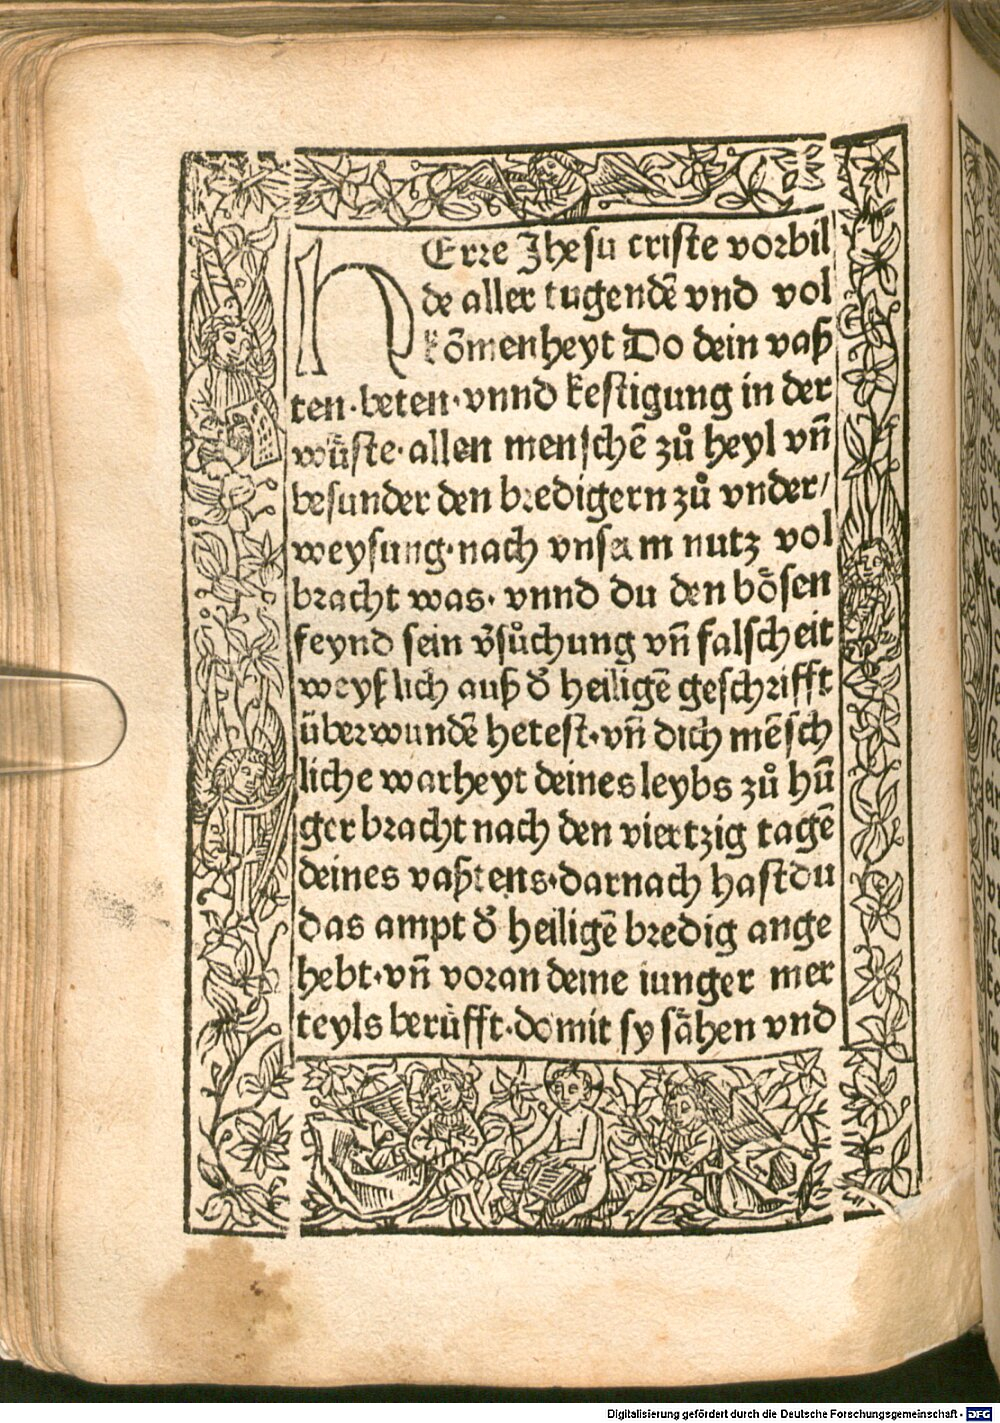 HErre Jhesu criste vorbil
de aller tugendē vnd vol
kōmenheyt Do dein vaß
ten·beten·vnnd kestigung in der
wüste·allen menschē zů heyl vñ
besunder den bredigern zů vnder/
weysung·nach vnserm nutz vol
bracht was· vnnd du den bösen
feynd sein v̄sůchung vñ falscheit
weyßlich auß d̄ heiligē geschrifft
überwundē hetest·vñ dich mēsch
liche warheyt deines leybs zů hū
ger bracht nach den viertzig tagē
deines vaßtens·darnach hastdu
das ampt d̄ heiligē bredig ange
hebt·vñ voran deine iunger mer
teyls berůfft·domit sy sähen vnd
Digitalisierung gefördert durch die Deutsche Forschungsgemeinschaft - DFG